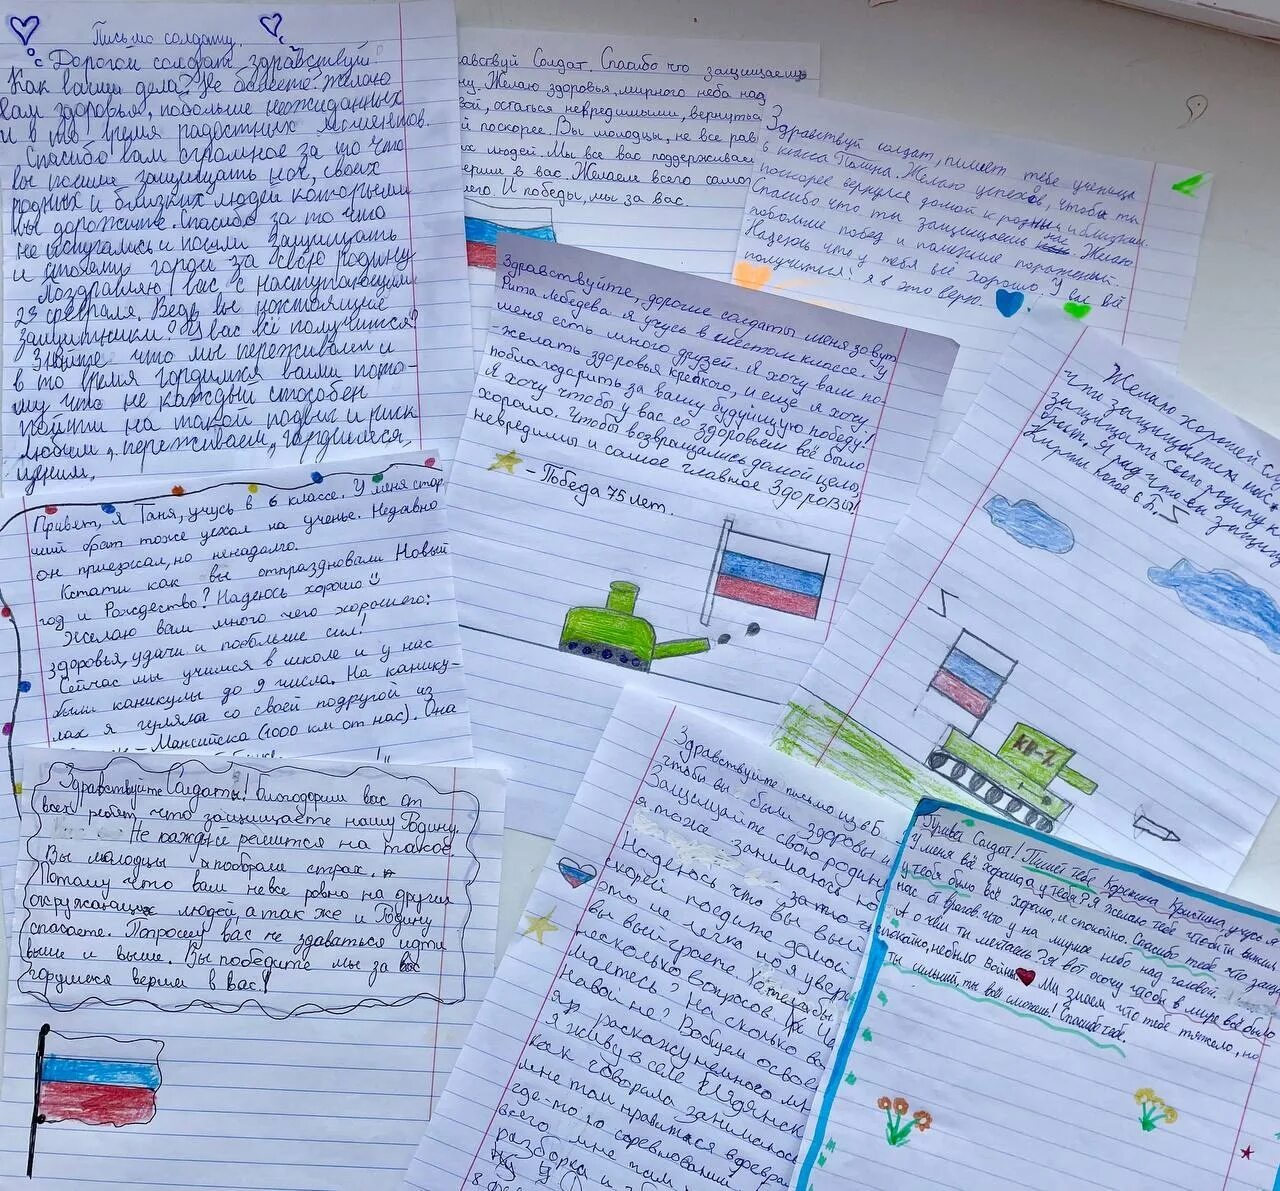 Письмо солдату.
Дорогой солдат здравствуй!
Как ваши дела? Не болеете? Желаю
вам здоровья, побольше неожиданных
и в то время радостных моментов.
Спасибо вам огромное за то что
вы пошли защищать нас, своих
родных и близких людей которыми
вы дорожите. Спасибо за то что
не испугались и пошли защищать
и стоять горой за свою родину
Поздравляю вас с наступающим
23 февраля. Ведь вы настоящие
защитники! У вас всё получится!
Знайте что мы переживаем и
в то время гордимся вами пото-
му что не каждый способен
пойти на такой подвиг и риск
любим, переживаем, гордимся,
ценим,
авствуй Солдат. Спасибо что защищаешь
ну. Желаю здоровья, мирного неба над
вой, остаться невредимыми, вернуться
й поскорее. Вы молодцы, не все рав
их людей. Мы все вас поддерживаем
верим в вас. Желаем всего само
его. И победы, мы за вас.
Здравствуй солдат, пишет тебе ученица
6 класса Полина. Желаю успехов, чтобы ты
поскорее вернулся домой к родным и близким.
Спасибо что ты защищаешь нас. Желаю
побольше побед и поменьше поражений.
Надеюсь что у тебя всё хорошо. У вас всё
получиться! я в это верю.
Здравствуйте, дорогие солдаты, меня зовут
Рита Лебедева. я учусь в шестом классе. У
меня есть много друзей. Я хочу вам по-
-желать здоровья крепкого, и ещё я хочу
поблагодарить за вашу будущую победу!
Я хочу чтобы у вас со здоровьем всё было
хорошо. Чтобы возвращались домой целы,
невредимы и самое главное Здоровы!
- Победа 75 лет.
Желаю хорошей
что защищаете
защищать свою родину
брат, Я рад что вы защищ
Кирилл Попов 6 Б.
КР-Z
Привет, я Таня, учусь в 6 классе. У меня стар
ший брат тоже уехал на ученье. Недавно
он приезжал, но ненадолго.
Кстати как вы отпраздновали Новый
год и Рождество? Надеюсь хорошо
Желаю вам много чего хорошего:
здоровья, удачи и побольше сил!
Сейчас мы учимся в школе и у нас
были каникулы до 9 числа. На канику-
лах я гуляла со своей подругой из
- Мансийска (1000 км от нас). Она
Здравствуйте Солдаты! Благодорим вас от
всех ребят, что защищаете нашу Родину.
Не каждый решится на такое.
Вы молодцы побрали страх.
Потому что вам невсе ровно на других
окружающих людей а так же и Родину
спасаете. Попросим вас не здаваться идти
выше и выше. Вы победите мы за вас
гордимся верим в вас!
Здравствуйте письмо из 6 Б.
чтобы вы были здоровы и
Защищайте свою родину
я тоже занимаюсь
Надеюсь что вы
скорей поедите домой
это не легко но я увер
вы выйграете
несколько вопросов.
мастесь? На сколько ва
навой не? Вобщем
я раскажу немного
я живу в селе
как говорила занимаюсь
мне там нравиться в
где-то по соревнований
всего мне там
разборка и
Привет Солдат! Пишет тебе Корекина Кристина, учусь я
У меня всё хорошо, а у тебя? Я желаю тебе чтобы ты выжил
у тебя было всё хорошо, и спокойно. Спасибо тебе что защищ
нас от врагов. что у на мирное небо над головой.
А о чём ты мечтаешь? Я вот хочу чтобы в мире всё было
спокойно, небыло войны Мы знаем что тебе тяжело, но
ты сильный, ты всё сможешь! Спасибо тебе.